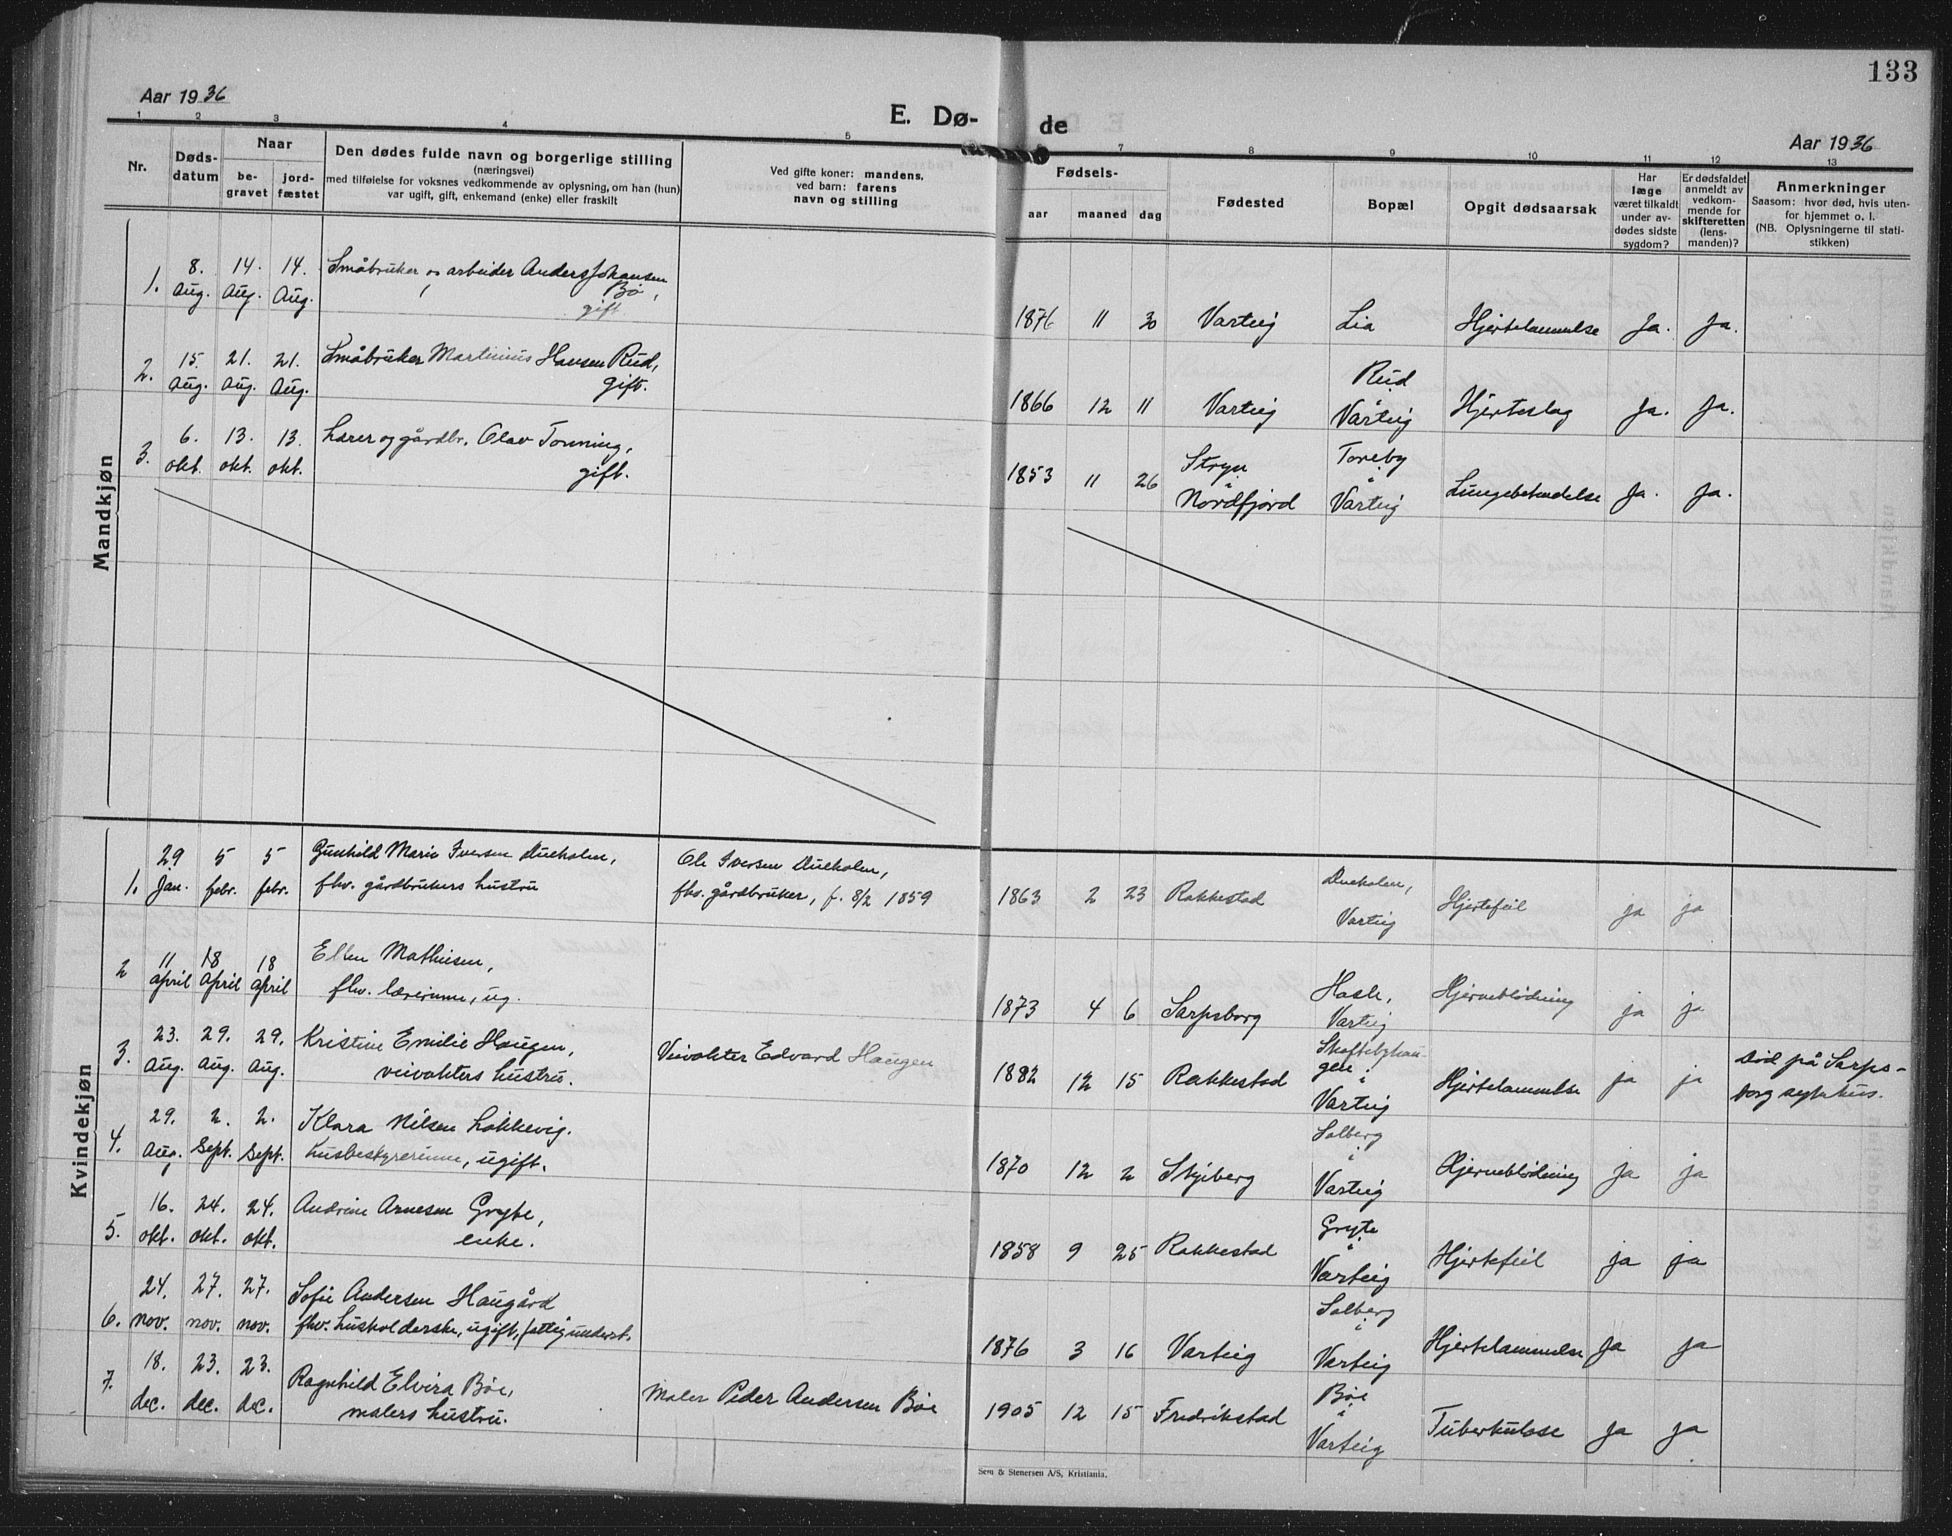 133
Aar 1936
E. Dø- de
Aar 1936
1 2 3 4 5 7 8 9 10 11 12 13
Nr.
Døds-
datum
Naar
be-
gravet
jord-
fæstet
Den dødes fulde navn og borgerlige stilling
(næringsvei)
med tilføielse for voksnes vedkommende av oplysning, om han (hun)
var ugift, gift, enkemand (enke) eller fraskilt
Ved gifte koner: mandens,
ved barn: farens
navn og stilling
Fødsels-
aar maaned dag
Fødested
Bopæl
Opgit dødsaarsak
Har
læge
været tilkaldt
under av-
dødes sidste
sygdom?
Er dødsfaldet
anmeldt av
vedkom-
mende for
skifteretten
(lens-
manden)?
Anmerkninger
Saasom: hvor død, hvis uten-
for hjemmet o. l.
(NB. Oplysningerne til stati-
stikken)
Mandkjøn
1. 8. Aug. 14. Aug. 14. Aug. Småbruker og arbeider Anders Johansen
Bø,
gift
1876 11 30 Varteig Lia Hjertelammelse Ja. Ja.
2. 15. Aug. 21. Aug. 21. Aug. Småbruker Martinius Hansen Rud,
gift.
1866 12 11 Varteig Rud, Varteig Hjerteslag Ja. Ja.
3. 6. okt. 13. okt. 13. okt. Lærer og gårdbr. Olav Tonning,
gift.
1853 11 26 Stryn i Nordfjord Toreby i Varteig Lungebetendelse Ja. Ja.
Kvindekjøn
1. 29 jan. 5 febr. 5 febr. Gunhild Marie Iversen Dueholen,
fhv. gårdbrukers hustru
Ole Iversen Dueholen,
fhv. gårdbruker, f. 8/2 1859
1863 2 23 Rakkestad Dueholen, Varteig Hjertefeil ja ja
2 11 april 18 april 18 april Ellen Mathiesen,
fhv. lærerinne, ug.
1873 4 6 Sarpsborg Hasle, Varteig Hjerneblödning ja ja
3. 23. Aug. 29. Aug. 29. Aug. Kristine Emilie Haugen,
veivokters hustru.
Veivokter Edvard Haugen
1882 12 15 Rakkestad Skaftebyhau-
gen i
Varteig Hjertelammelse ja ja Död på Sarps-
borg sykehus.
4. 29. Aug. 2. Sept. 2. Sept. Klara Nilsen Løkkevig.
husbestyrerinne, ugift.
1870 12 2 Skjeberg Solberg i Varteig Hjerneblödning ja ja
5. 16. okt. 24. okt. 24. okt. Andrine Arnesen Gryte,
enke.
1858 9 25 Rakkestad Gryte i Varteig Hjertefeil ja ja
6. 24. nov. 27. nov. 27. nov. Sofie Andersen Haugård
fhv. husholderske, ugift, fattigunderst.
1876 3 16 Varteig Solberg i Varteig Hjertelammelse Ja Ja
7. 18. dec. 23. dec. 23. dec. Ragnhild Elvira Bøe,
malers hustru.
Maler Peder Andersen Bøe
1905 12 15 Fredrikstad Bøe i Varteig Tuberkulose Ja Ja
Sem & Stenersen A/S, Kristiania.